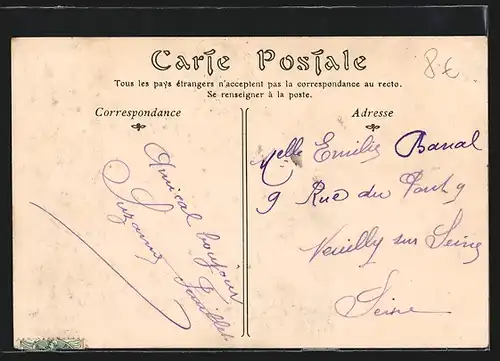 Carte Postale
8€
Tous les pays étrangers n'acceptent pas la correspondance au recto.
Se renseigner à la poste.
Correspondance
Amical bonjour
Suzanne
Adresse
Melle Emilie Banal
9 Rue du Pont 9
Neuilly sur Seine
Seine